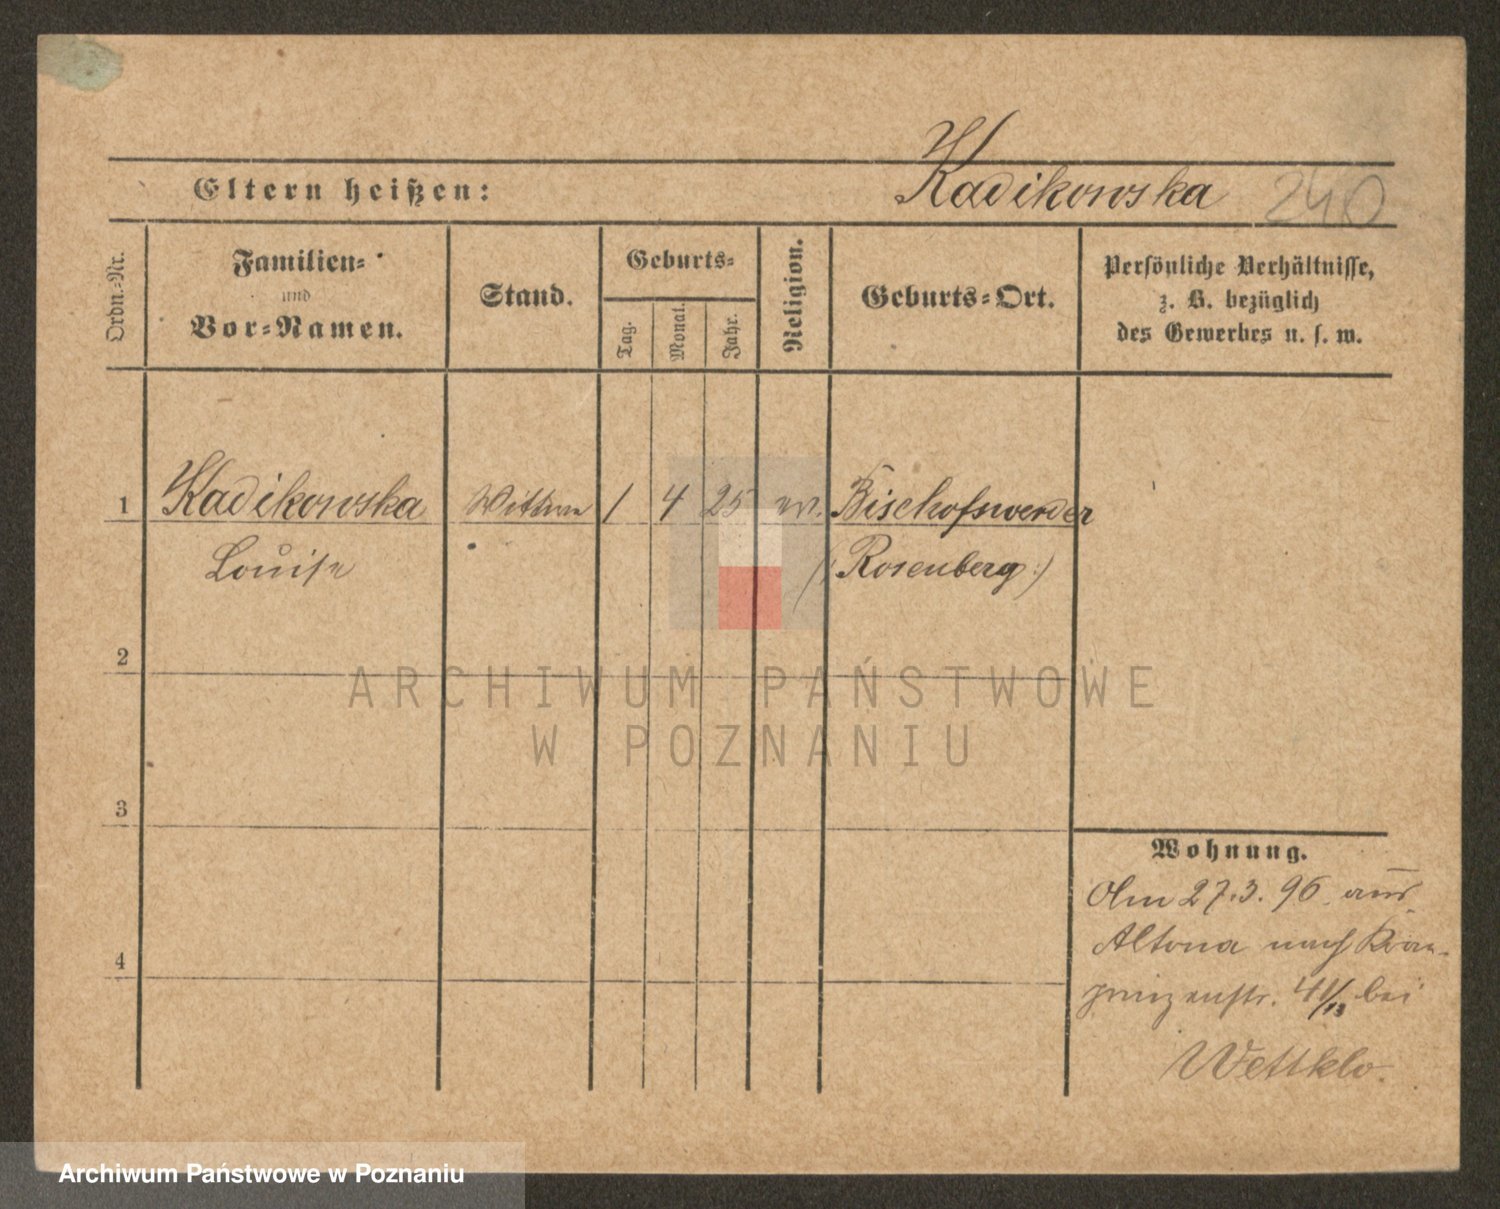 Kadikowska 240
Eltern heißen:
Ordn.-Nr.
Familien-
und
Vor-Namen.
Stand.
Geburts-
Tag.
Monat.
Jahr.
Religion.
Geburts-Ort.
Persönliche Verhältnisse,
z. B. bezüglich
des Gewerbes u. s. w.
1 Kadikowska Wittwe 1 4 25 ev. Bischofswerder
Louise (: Rosenberg :)
2
ARCHIWUM PAŃSTWOWE
W POZNANIU
3
4
Wohnung.
Am 27.3.96. aus
Altona nach Kron-
prinzenstr. 41/13 bei
Archiwum Państwowe w Poznaniu